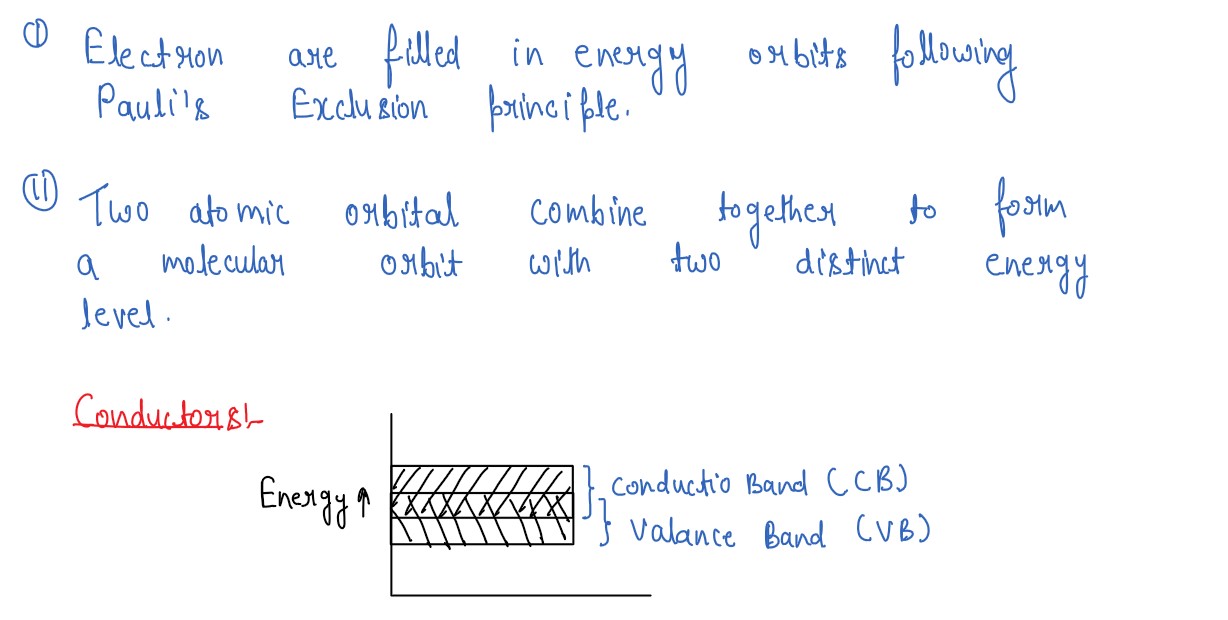 ① Electron are filled in energy orbits following
Pauli's Exclusion principle.
⑪ Two atomic orbital combine together to form
a molecular orbit with two distinct energy
level.
Conductors:-
Energy ↑
} Conductio Band (CCB)
} Valance Band (VB)